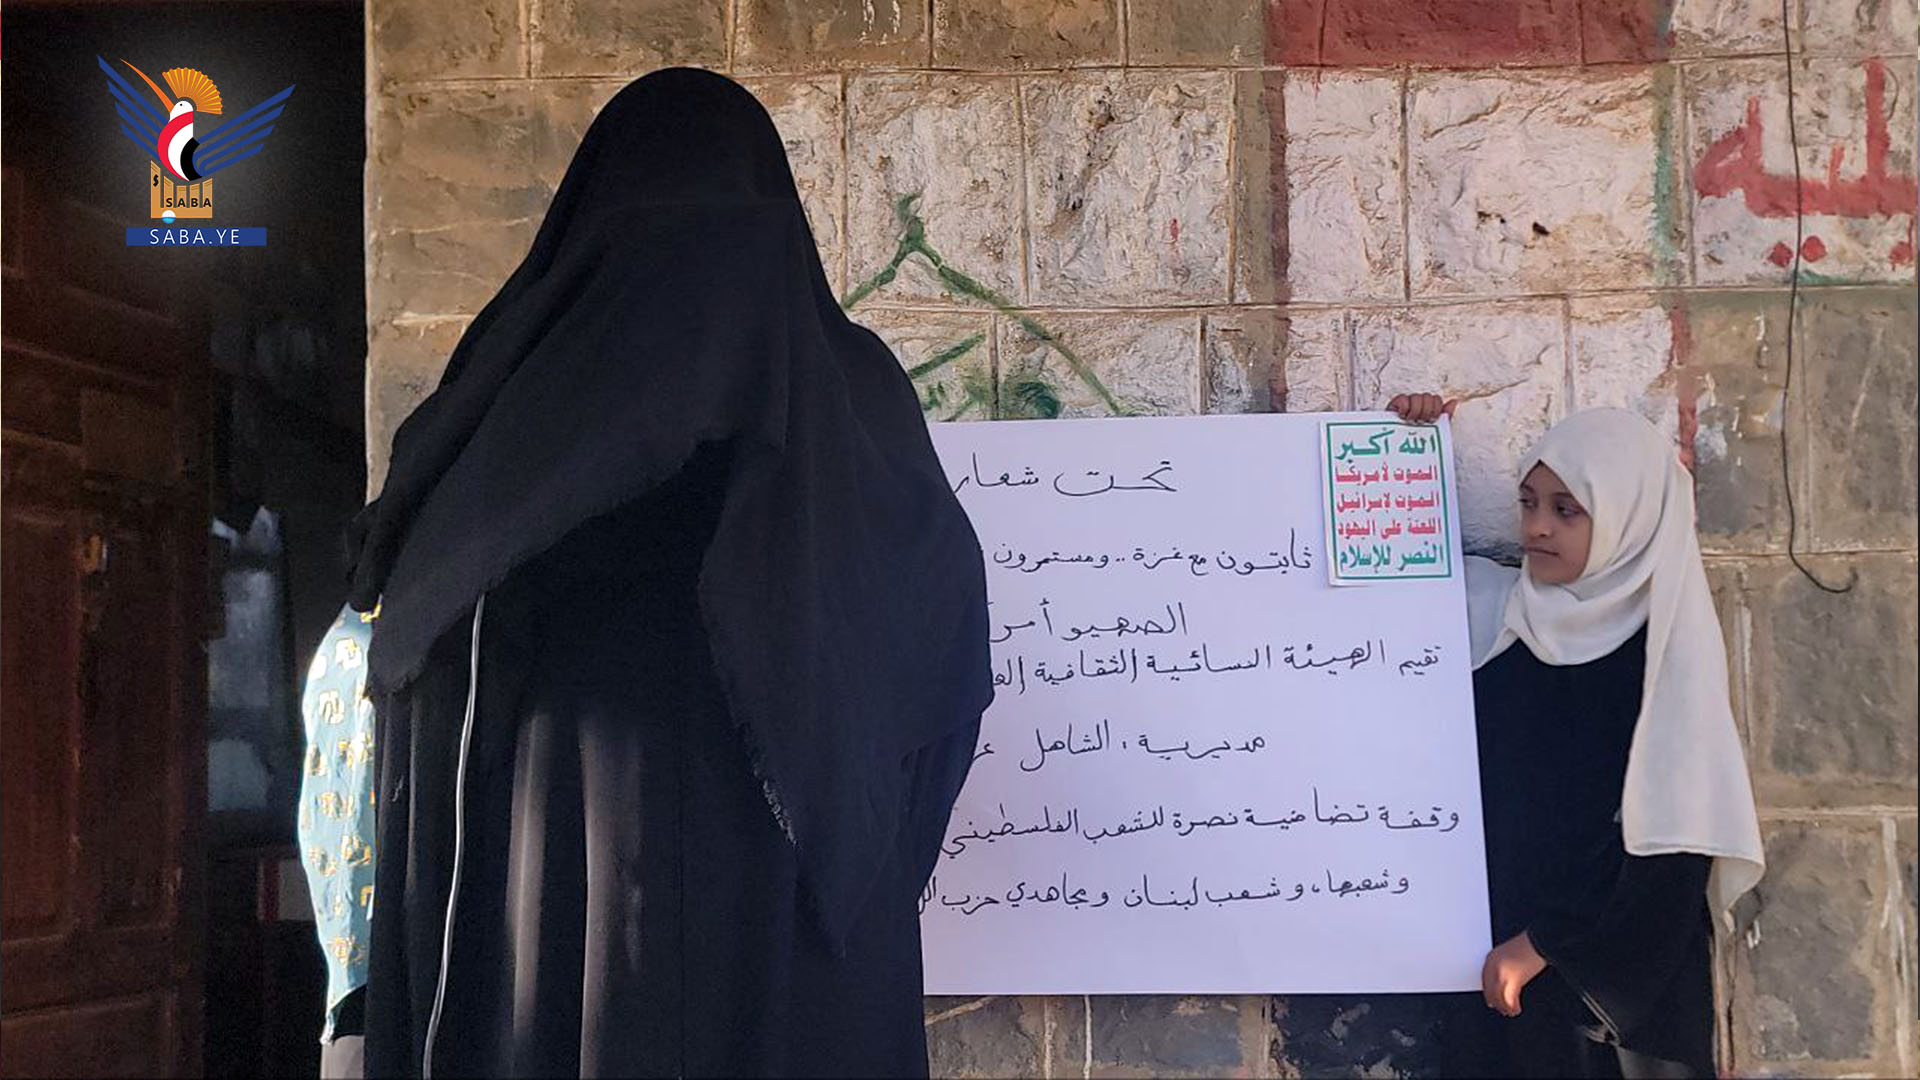 SABA
SABA.YE
الله أكبر
الموت لأمريكا
الموت لإسرائيل
اللعنة على اليهود
النصر للإسلام
تحت شعار
ثابتون مع غزة .. ومستمرون
الصهيو أمر
تقيم الهيئة النسائية الثقافية
مديرية : الشاهل
وقفة تضامنية نصرة للشعب الفلسطيني
وشعبها، وشعب لبنان ومجاهدي حزب